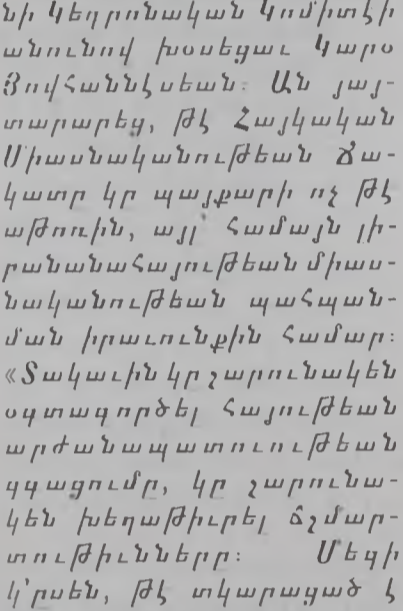 նի Կեդրոնական Կոմիտէի
անունով խօսեցաւ Կարօ
Յովհաննէսեան։ Ան յայ-
տարարեց, թէ Հայկական
Միասնականութեան Ճա-
կատր կր պայքարի ոչ թէ
աթոռին, այլ՝ համայն լի-
բանանահայութեան միաս-
նականութեան պահպան-
ման իրաւունքին համար։
«Տակաւին կր շարունակեն
օգտագործել հայութեան
արժանապատուութեան
զգացումը, կը շարունա-
կեն խեղաթիւրել ճշմար-
տութիւնները։ Մեզի
կ՚րսեն, թէ տկարացած է